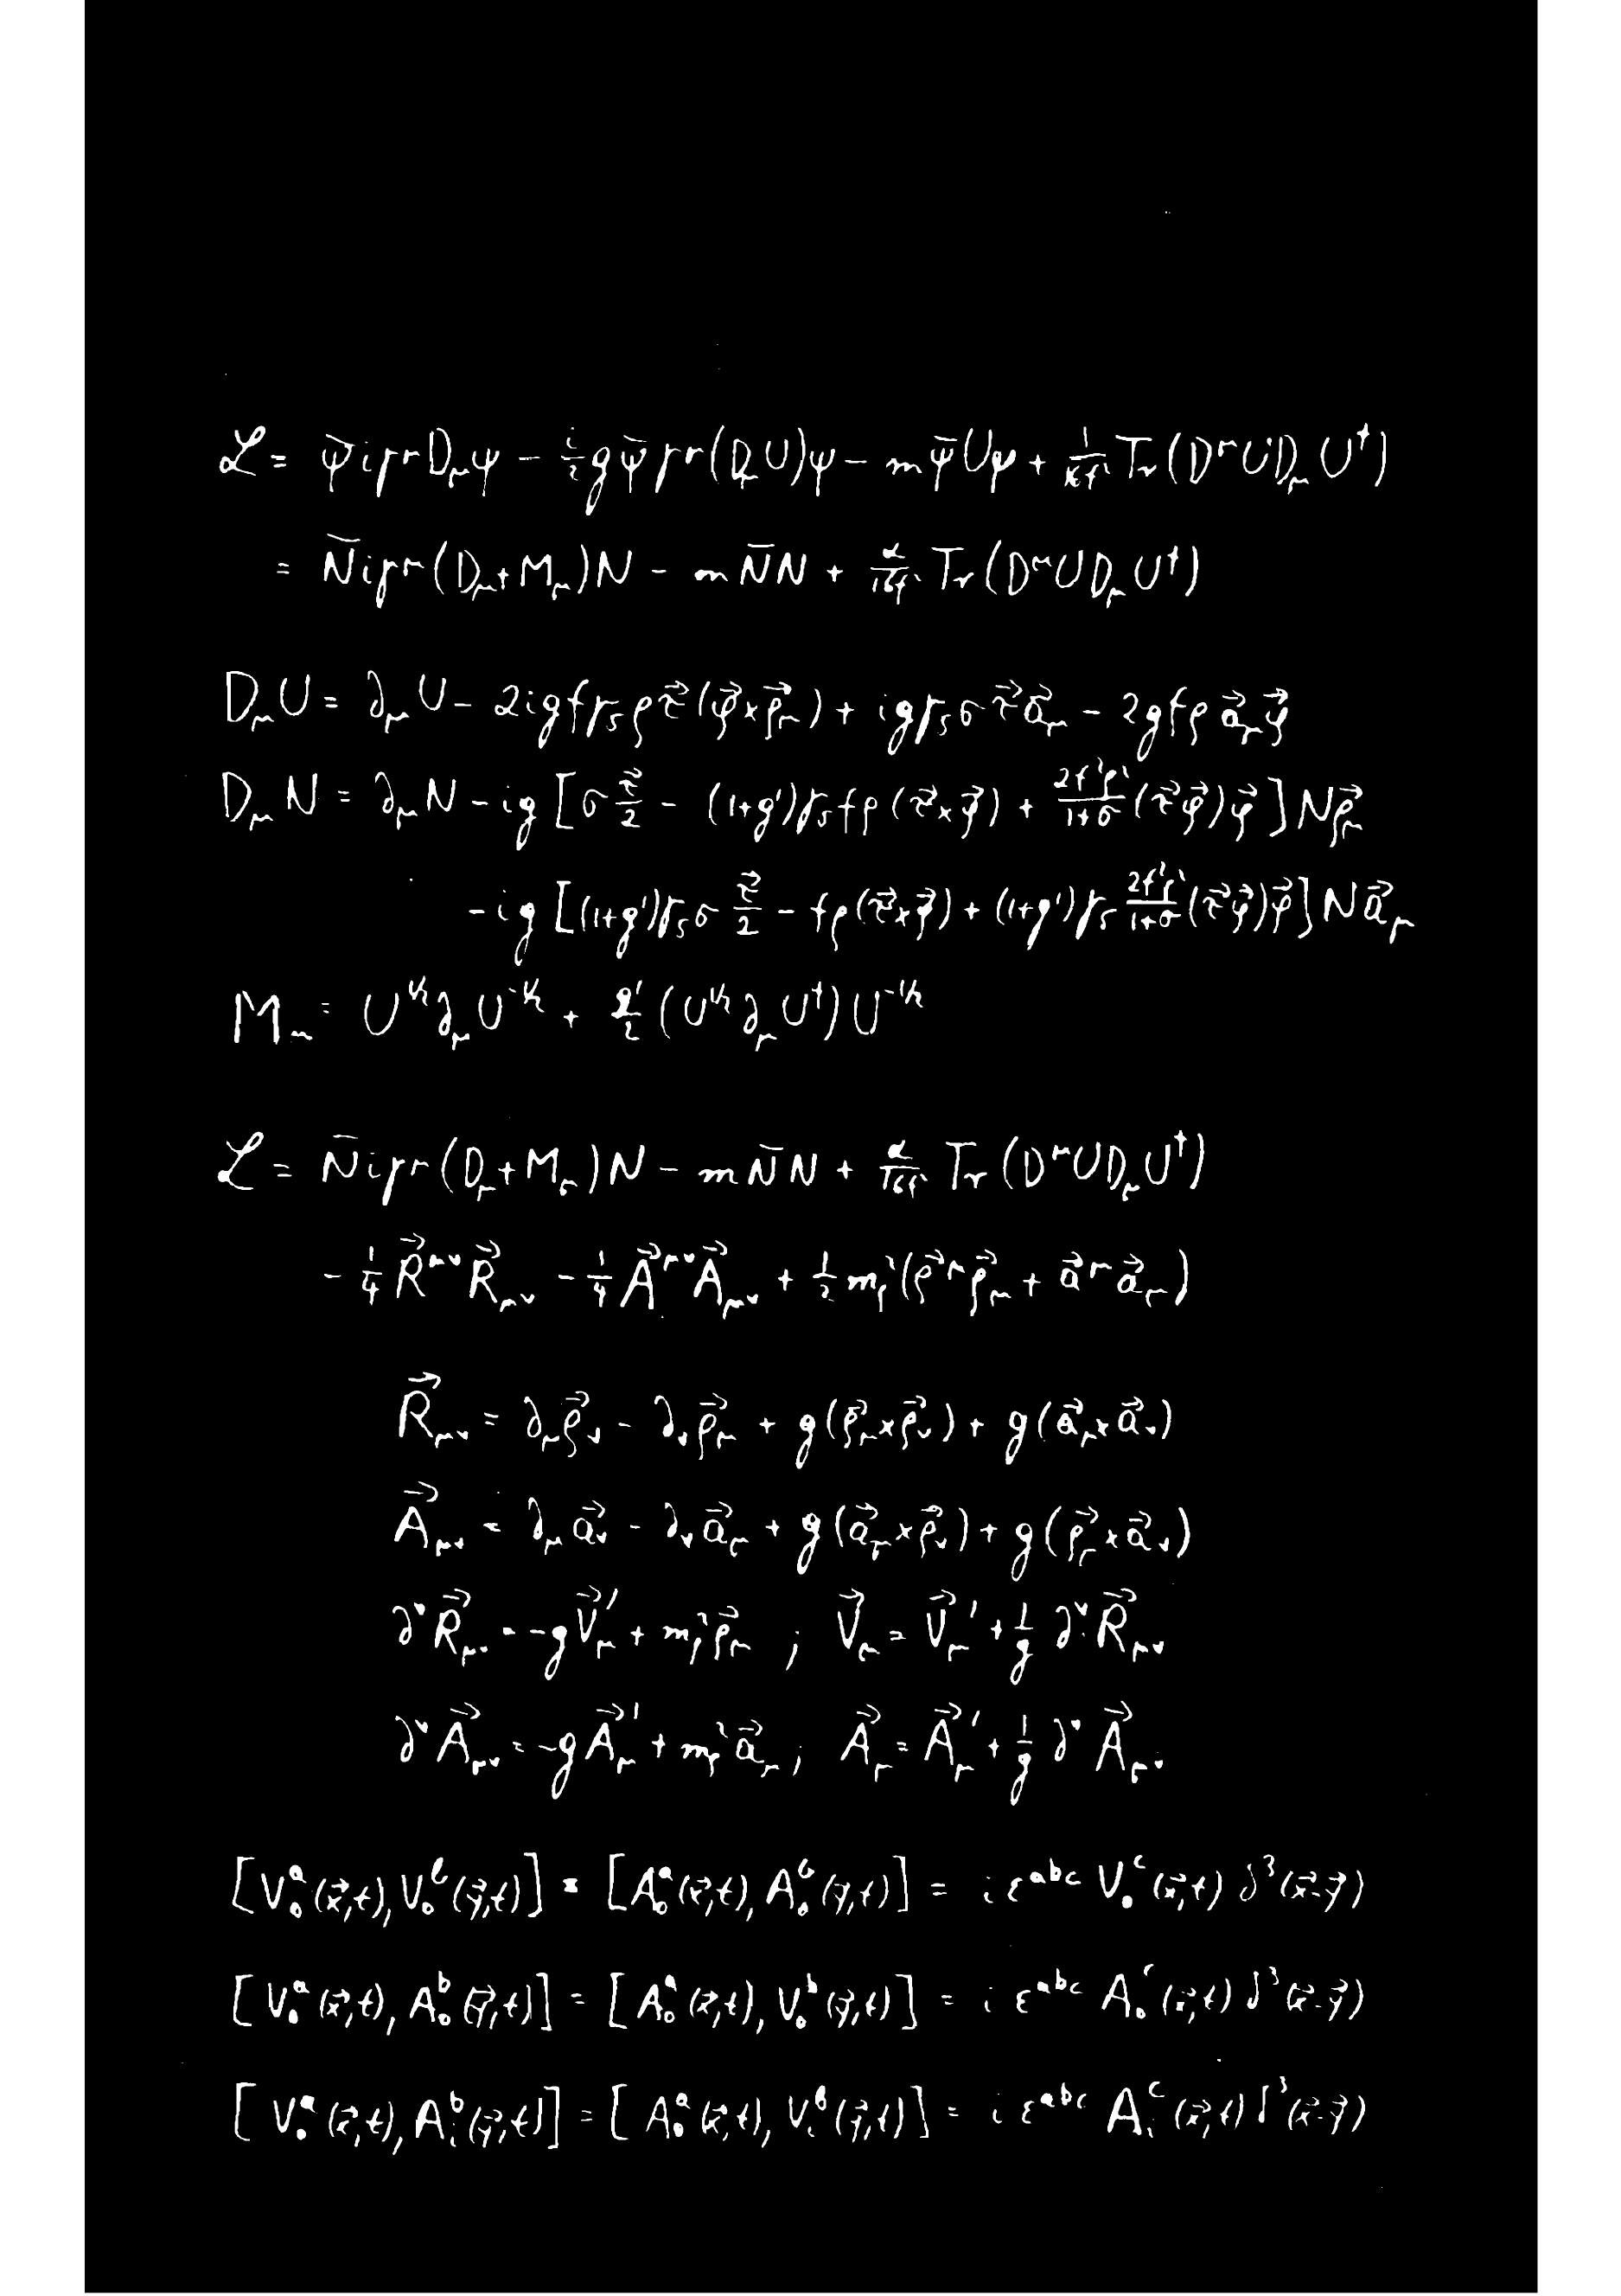 ℒ = ψ̄iγ^μD_μψ − i/2 gψ̄γ^μ(D_μU)ψ − mψ̄Uψ + Tr(D^μUD_μU†)
= N̄iγ^μ(D_μ+M_μ)N − mN̄N + α/16f² Tr(D^μUD_μU†)
D_μU = ∂_μU − 2igfγ₅ρτ⃗(φ⃗×ρ⃗_μ) + igγ₅στ⃗a⃗_μ − 2gfρa⃗_μφ⃗
D_μN = ∂_μN − ig[σ τ⃗/2 − (1+g')γ₅fρ(τ⃗×φ⃗) + 2f²ρ²/1+σ (τ⃗φ⃗)φ⃗]Nρ⃗_μ
− ig[(1+g')γ₅σ τ⃗/2 − fρ(τ⃗×φ⃗) + (1+g')γ₅ 2f²ρ²/1+σ (τ⃗φ⃗)φ⃗]Na⃗_μ
M_μ = U^½∂_μU^-½ + g'/2 (U^½∂_μU†)U^-½
ℒ = N̄iγ^μ(D_μ+M_μ)N − mN̄N + α/16f² Tr(D^μUD_μU†)
− 1/4 R⃗^μνR⃗_μν − 1/4 A⃗^μνA⃗_μν + 1/2 m_ρ²(ρ⃗^μρ⃗_μ + a⃗^μa⃗_μ)
R⃗_μν = ∂_μρ⃗_ν − ∂_νρ⃗_μ + g(ρ⃗_μ×ρ⃗_ν) + g(a⃗_μ×a⃗_ν)
A⃗_μν = ∂_μa⃗_ν − ∂_νa⃗_μ + g(a⃗_μ×ρ⃗_ν) + g(ρ⃗_μ×a⃗_ν)
∂^νR⃗_μν = −gV⃗_μ' + m_ρ²ρ⃗_μ ; V⃗_μ = V⃗_μ' + 1/g ∂^νR⃗_μν
∂^νA⃗_μν = −gA⃗_μ' + m_ρ²a⃗_μ ; A⃗_μ = A⃗_μ' + 1/g ∂^νA⃗_μν
[V₀^a(x⃗,t), V₀^b(y⃗,t)] = [A₀^a(x⃗,t), A₀^b(y⃗,t)] = iε^abc V₀^c(x⃗,t) δ³(x⃗−y⃗)
[V₀^a(x⃗,t), A₀^b(y⃗,t)] = [A₀^a(x⃗,t), V₀^b(y⃗,t)] = iε^abc A₀^c(x⃗,t) δ³(x⃗−y⃗)
[V₀^a(x⃗,t), A_i^b(y⃗,t)] = [A₀^a(x⃗,t), V_i^b(y⃗,t)] = iε^abc A_i^c(x⃗,t) δ³(x⃗−y⃗)